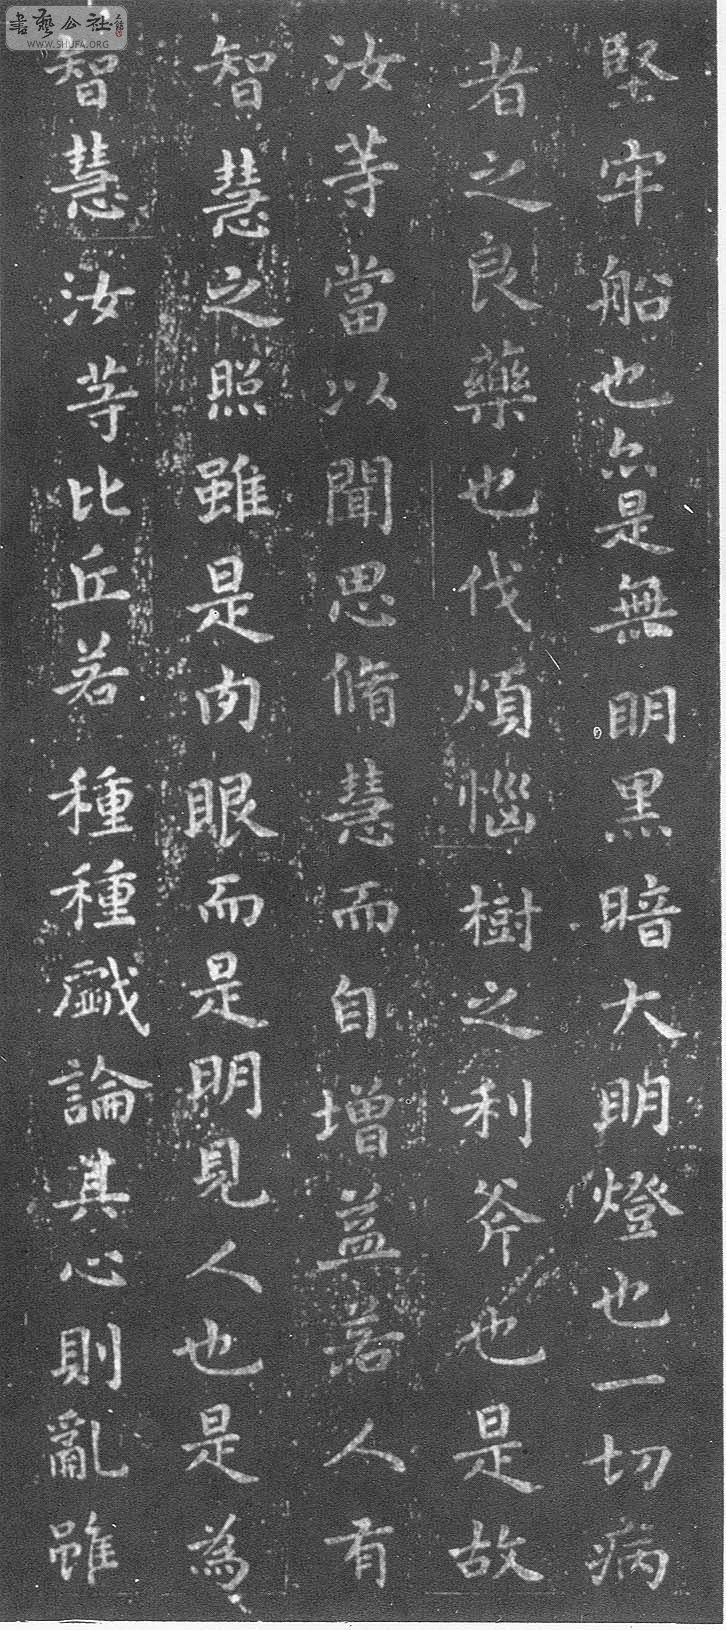 書藝公社
WWW.SHUFA.ORG
堅牢船也亦是無明黑暗大明燈也一切病
者之良藥也伐煩惱樹之利斧也是故
汝等當以聞思脩慧而自增益若人有
智慧之照雖是肉眼而是明見人也是為
智慧汝等比丘若種種戲論其心則亂雖